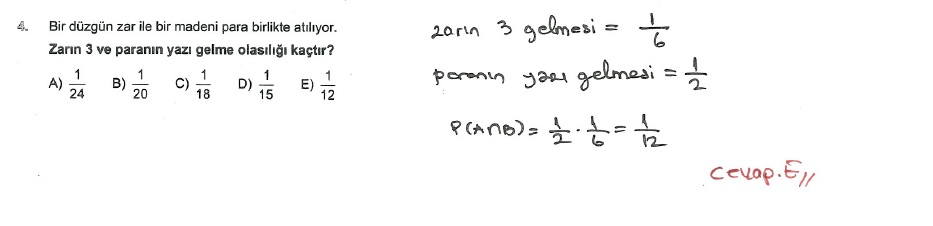 4. Bir düzgün zar ile bir madeni para birlikte atılıyor.
Zarın 3 ve paranın yazı gelme olasılığı kaçtır?
A) 1/24 B) 1/20 C) 1/18 D) 1/15 E) 1/12
zarın 3 gelmesi = 1/6
paranın yazı gelmesi = 1/2
P(A∩B) = 1/2 · 1/6 = 1/12
Cevap.E//